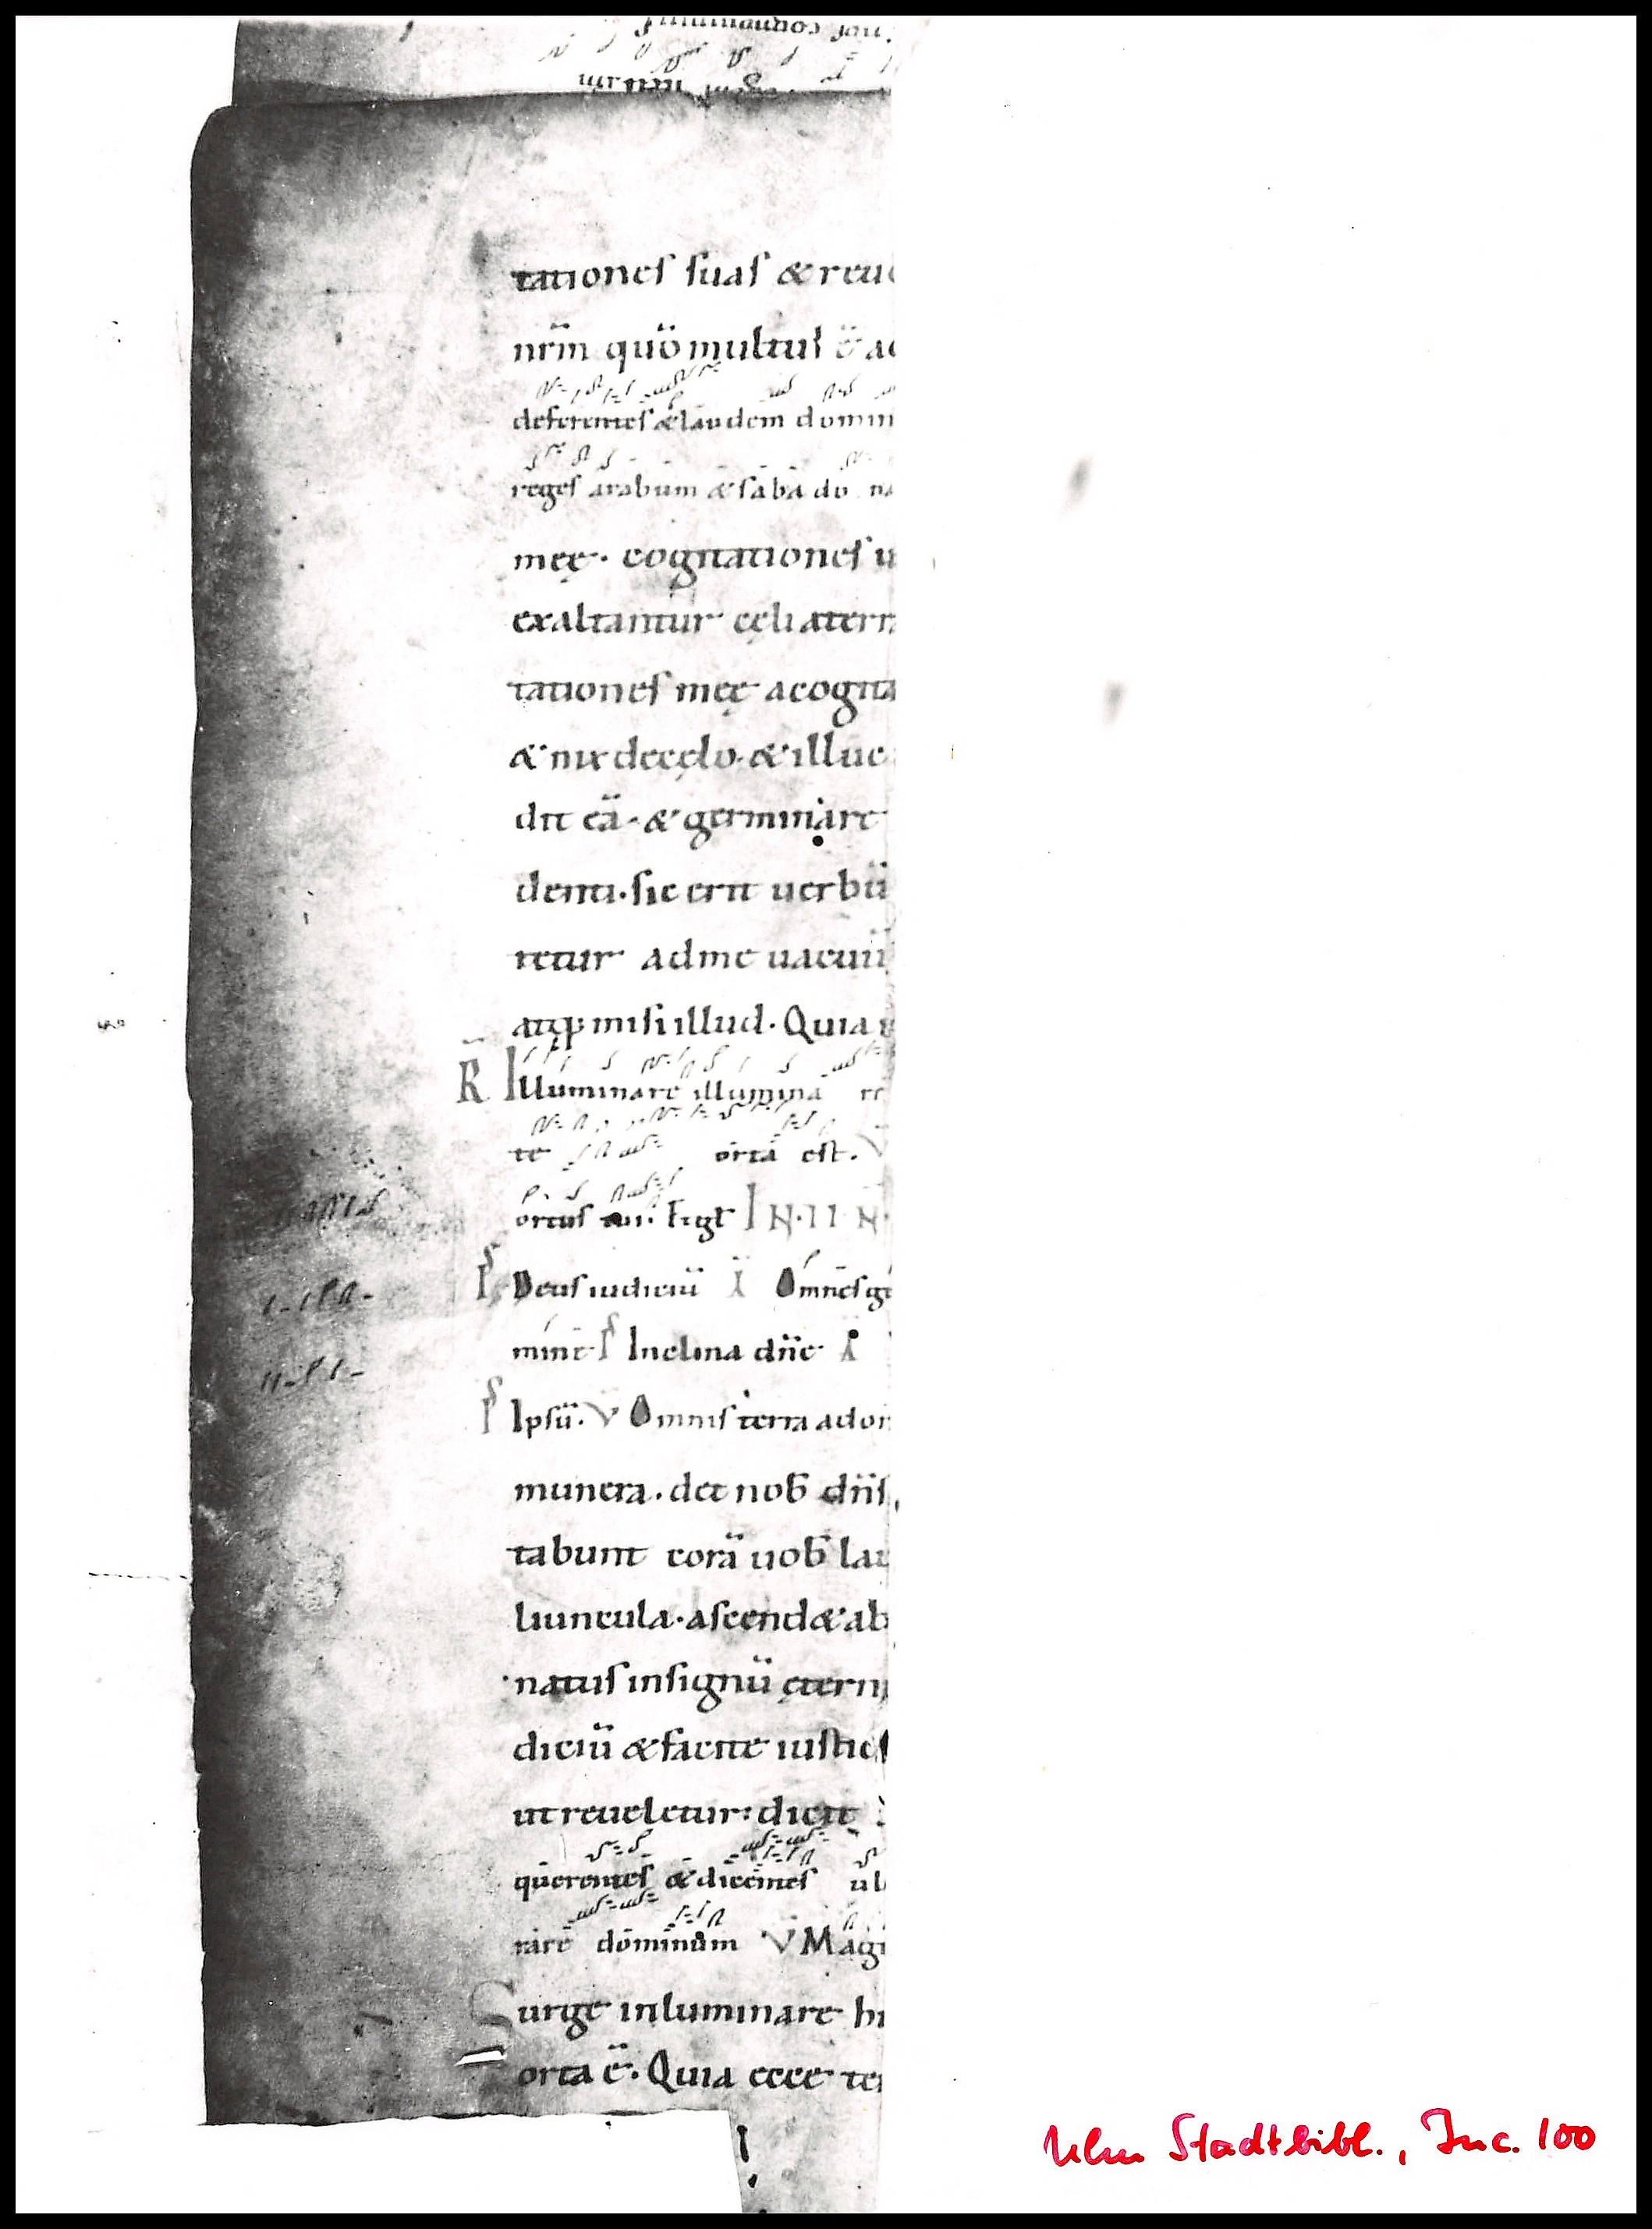 tationes suas & reue
nr̄m quō multus ē ad
deferentes & laudem domin
reges arabum & saba do na
meę. cogitationes u
exaltantur cęli a terr
tationes meę a cogita
& nix de cęlo. & illuc
dit eā. & germinare
denti. sic erit uerbū
tetur ad me uacuū
atq; misi illud. Quia
R̄ Illuminare illumina re
te orta est. V
ortus tui. Et gl IN. II. N.
Ps Deus iudiciū A Omnes ge
mine Ps Inclina dn̄e A
Ps Ipsū. V Omnis terra ador
munera. det nob dn̄s
tabunt corā uob lau
liuncula. ascend& ab
natus in signū ętern
diciū & facite iustic
ut reueletur: dicit
querentes & dicentes ub
rare dominum V Magi
Surge inluminare hi
orta ē. Quia ecce te
Ulm Stadtbibl., Inc. 100